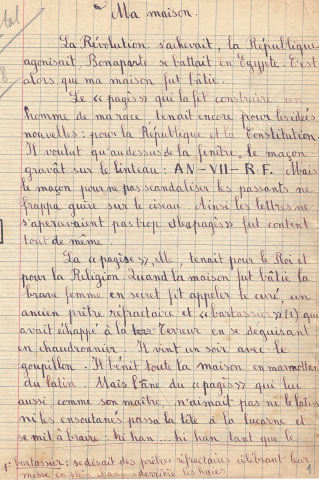 Ma maison.
La Révolution s'achevait, la République
agonisait, Bonaparte se battait en Egypte. C'est
alors que ma maison fut bâtie.
Le "pagès" qui la fit construire, un
homme de ma race, tenait encore pour les idées
nouvelles : pour la République et la Constitution.
Il voulut qu'au dessus de la fenêtre, le maçon
gravât sur le linteau : AN-VII-R.F. Mais
le maçon pour ne pas scandaliser les passants ne
frappa guère sur le ciseau. Ainsi les lettres ne
s'apercevaient pas trop et le "pagès" fut content
tout de même.
La "pagèse", elle, tenait pour le Roi et
pour la Religion. Quand la maison fut bâtie la
brave femme en secret fit appeler le curé, un
ancien prêtre réfractaire et "bartassier" (1) qui
avait échappé à la Terreur en se déguisant
en chaudronnier. Il vint un soir avec le
goupillon. Il bénit toute la maison en marmottant
du latin. Mais l'âne du "pagès" qui lui
aussi, comme son maître, n'aimait pas ni le latin
ni les ensoutanés passa la tête à la lucarne et
se mit à braire : hi han... hi han tant que le
1: bartassier : se disait des prêtres réfractaires célébrant leur
messe en plein champ - derrière les haies
1